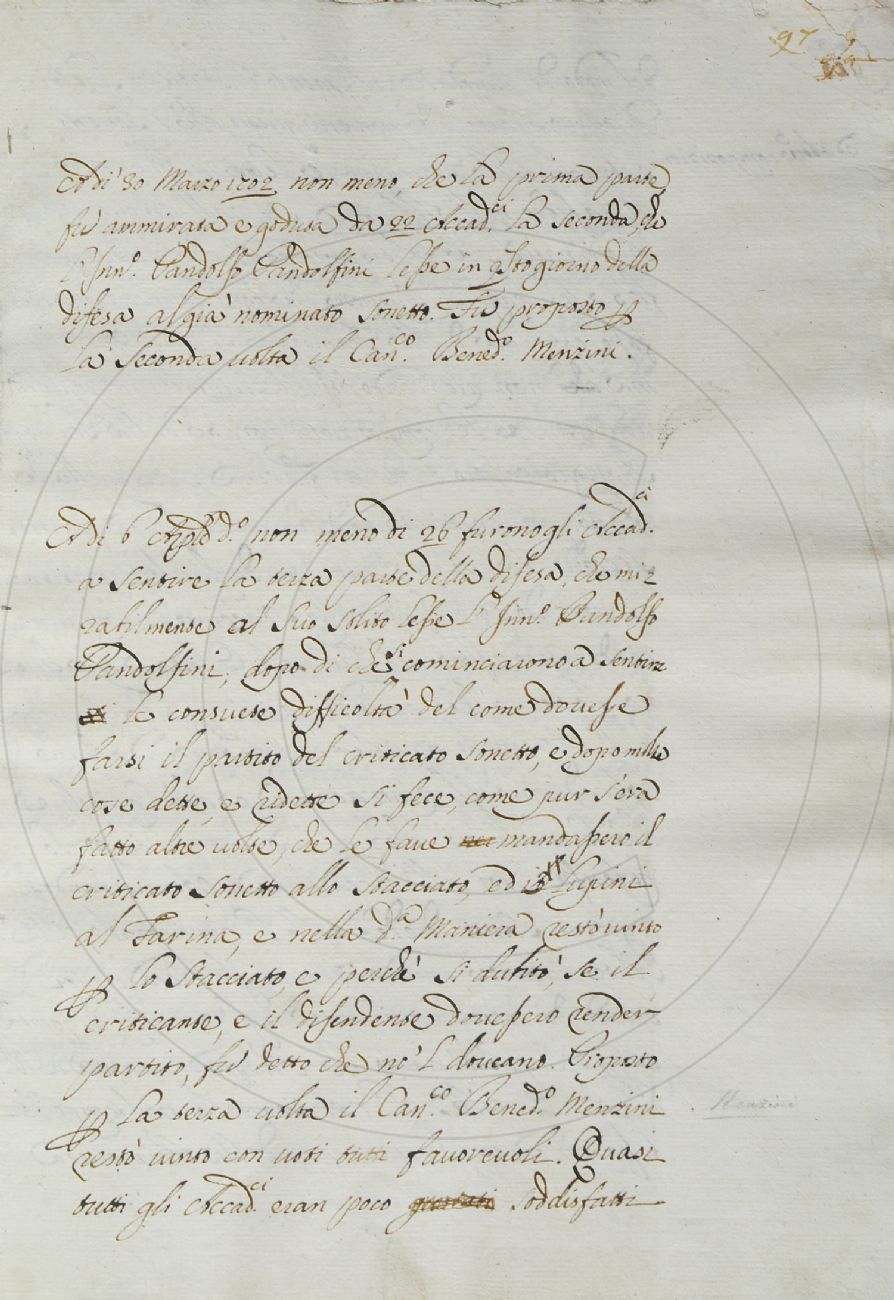 97
A dì 30 Marzo 1702 non meno, che la prima parte
fù ammirata e goduta da 22 Accad.ci la seconda, che
l'Inn.o Pandolfo Pandolfini lesse in q.sto giorno della
difesa al già nominato sonetto. Fu proposto p
la seconda volta il Can.co Bened.o Menzini.
A dì 6 Aple d.o non meno di 26 furono gli Accad.ci
a sentire la terza parte della difesa, che mi=
rabilmente al suo solito lesse l'Inn.o Pandolfo
Pandolfini, dopo di che si cominciarono a sentire
le consuete difficoltà del come dovesse
farsi il partito del criticato sonetto, e dopo mille
cose dette, e ridette si fece, come pur s'era
fatto altre volte, che le fave mandassero il
criticato sonetto allo Stacciato, ed i Lupini
al Farina, e nella d.a Maniera restò vinto
p lo Stacciato, e perchè si dubitò, se il
criticante, e il difendente dovessero render
partito, fù detto che nò 'l doveano. Proposto
p la terza volta il Can.co Bened.o Menzini
Menzini
restò vinto con voti tutti favorevoli. Quasi
tutti gli Accad.ci eran poco soddisfatti